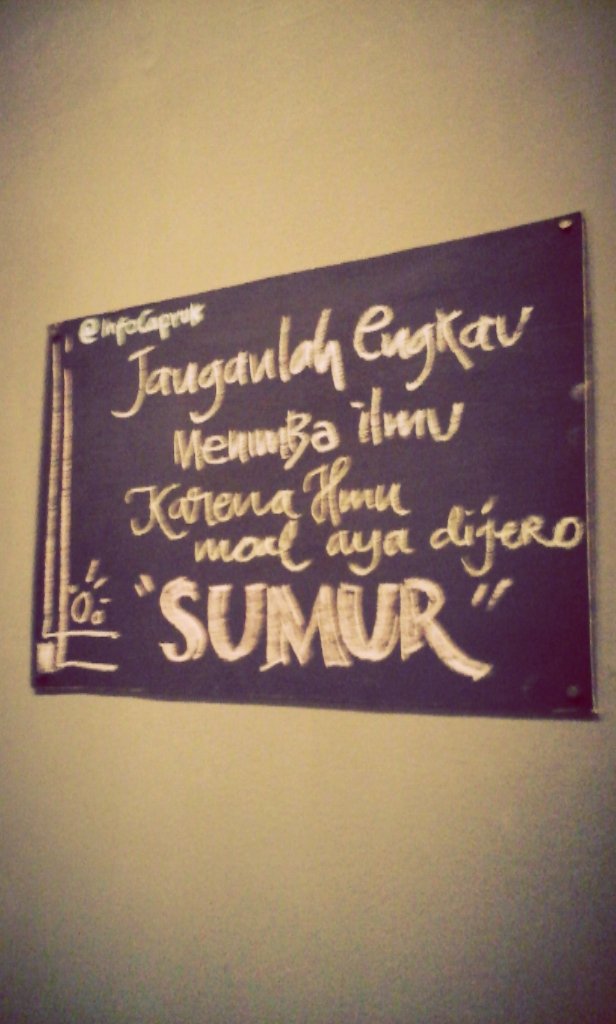 @infoCapruk
Janganlah Engkau
Menimba ilmu
Karena Ilmu
moal aya dijero
"SUMUR"